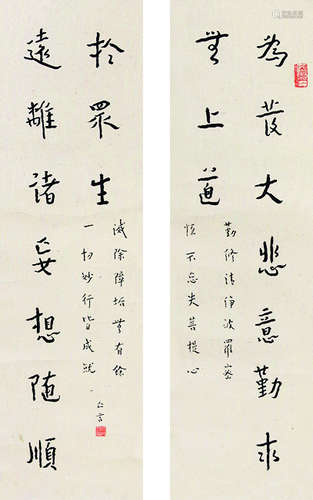 為發大悲意勤求
無上道
勤修清淨波羅蜜
恒不忘失菩提心
遠離諸妄想隨順
於眾生
滅除障垢無有餘
一切妙行皆成就